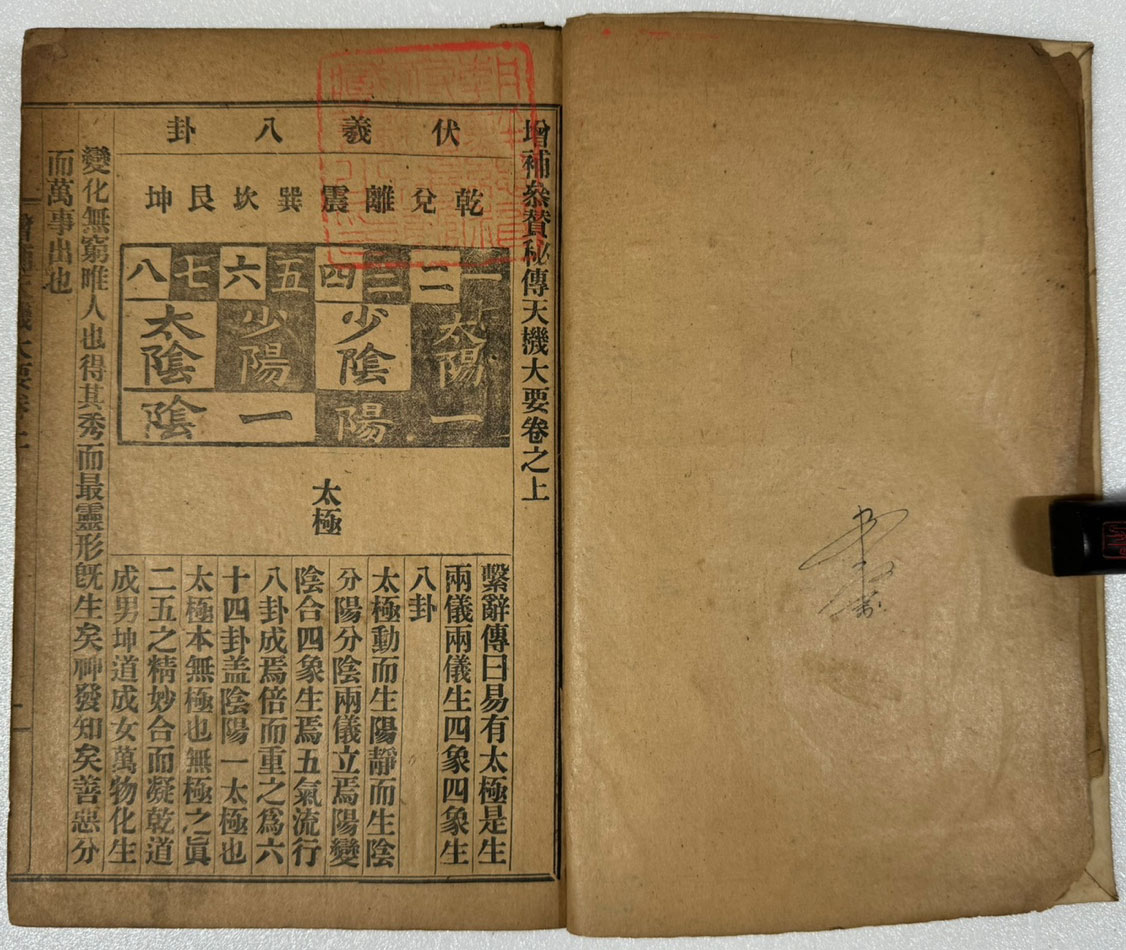 增補叅贊秘傳天機大要卷之上
伏羲八卦
乾兌離震巽坎艮坤
一二三四五六七八
太陽 少陰 少陽 太陰
一陽 一陰
太極
繫辭傳曰易有太極是生
兩儀兩儀生四象四象生
八卦
太極動而生陽靜而生陰
分陽分陰兩儀立焉陽變
陰合四象生焉五氣流行
八卦成焉倍而重之爲六
十四卦盖陰陽一太極也
太極本無極也無極之眞
二五之精妙合而凝乾道
成男坤道成女萬物化生
變化無窮唯人也得其秀而最靈形旣生矣神發知矣善惡分
而萬事出也